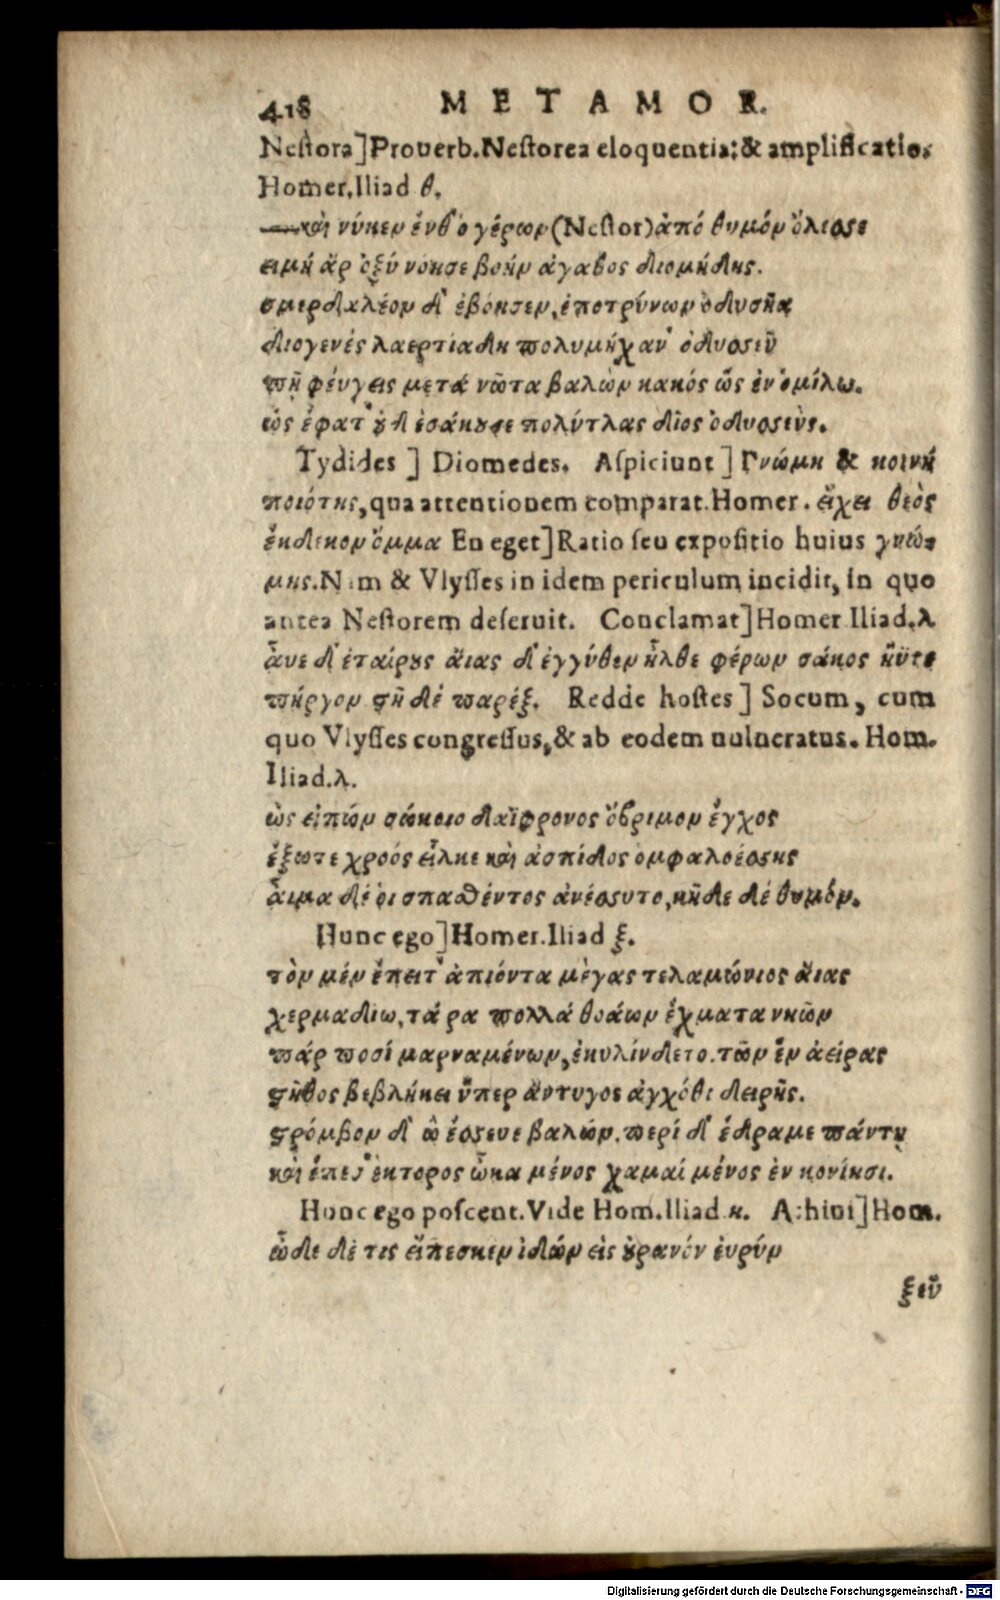 418 METAMOR.
Nestora] Prouerb. Nestorea eloquentia: & amplificatio.
Homer. Iliad θ.
—καὶ νύκεν ἔνθ' ὁ γέρων (Nestor) ἀπό θυμόν ὄλεσσε
ειμή ἄρ ὀξύ νόησε βοήν ἀγαθος διομήδης.
σμερδαλέον δ' ἐβόησεν, ἐποτρύνων ὀδυσῆα
διογενές λαερτιαδη πολυμήχαν' ὀδυσσεῦ
πῆ φέυγεις μετά νῶτα βαλὼν κακός ὥς ἐν ὁμίλω.
ὡς ἐφατ' ουδ' ἐσάκουσε πολύτλας δῖος ὀδυσσεὺς.
Tydides ] Diomedes. Aspiciunt ] Γνώμη & κοινή
ποιότης, qua attentionem comparat. Homer. ἔχει θεὸς
ἐκδικον ὄμμα En eget] Ratio seu expositio huius γνώ-
μης. Nam & Vlysses in idem periculum incidit, in quo
antea Nestorem deseruit. Conclamat] Homer Iliad. λ
ἆυε δ' ἑταίρους ἄιας δ' ἐγγύθεν ἦλθε φέρων σάκος ἠΰτε
πύργον στῆ δέ παρέξ. Redde hostes ] Socum, cum
quo Vlysses congressus, & ab eodem uulneratus. Hom.
Iliad. λ.
ὡς ειπών σώκοιο δαΐφρονος ὄβριμον ἔγχος
ἔξωτε χροός εἷλκε καὶ ἀσπίδος ομφαλοέσσης
ἇιμα δέ ὁι σπαθέντος ἀνέσσυτο, κῆδε δέ θυμόν.
Hunc ego] Homer. Iliad ξ.
τὸν μέν ἔπειτ' ἀπιόντα μέγας τελαμώνιος ἄιας
χερμαδιω, τά ρα πολλά θοάων ἔχματα νηῶν
πάρ ποσί μαρναμένων, ἐκυλίνδετο. τῶν ἕν ἀείρας
στῆθος βεβλήκει ὕπερ ἄντυγος ἀγχόθι δειρῆς.
στρόμβον δ' ὣ ἔσσευε βαλών, περί δ' ἔδραμε πάντη
καὶ ἔπεσ' ἕκτορος ὦκα μένος χαμαί μένος ἐν κονίησι.
Hunc ego poscent. Vide Hom. Iliad. κ. Achiui] Hom.
ὧδε δέ τις εἴπεσκεν ἰδών εἰς ουρανόν ἐυρύν
ξεῦ
Digitalisierung gefördert durch die Deutsche Forschungsgemeinschaft - DFG